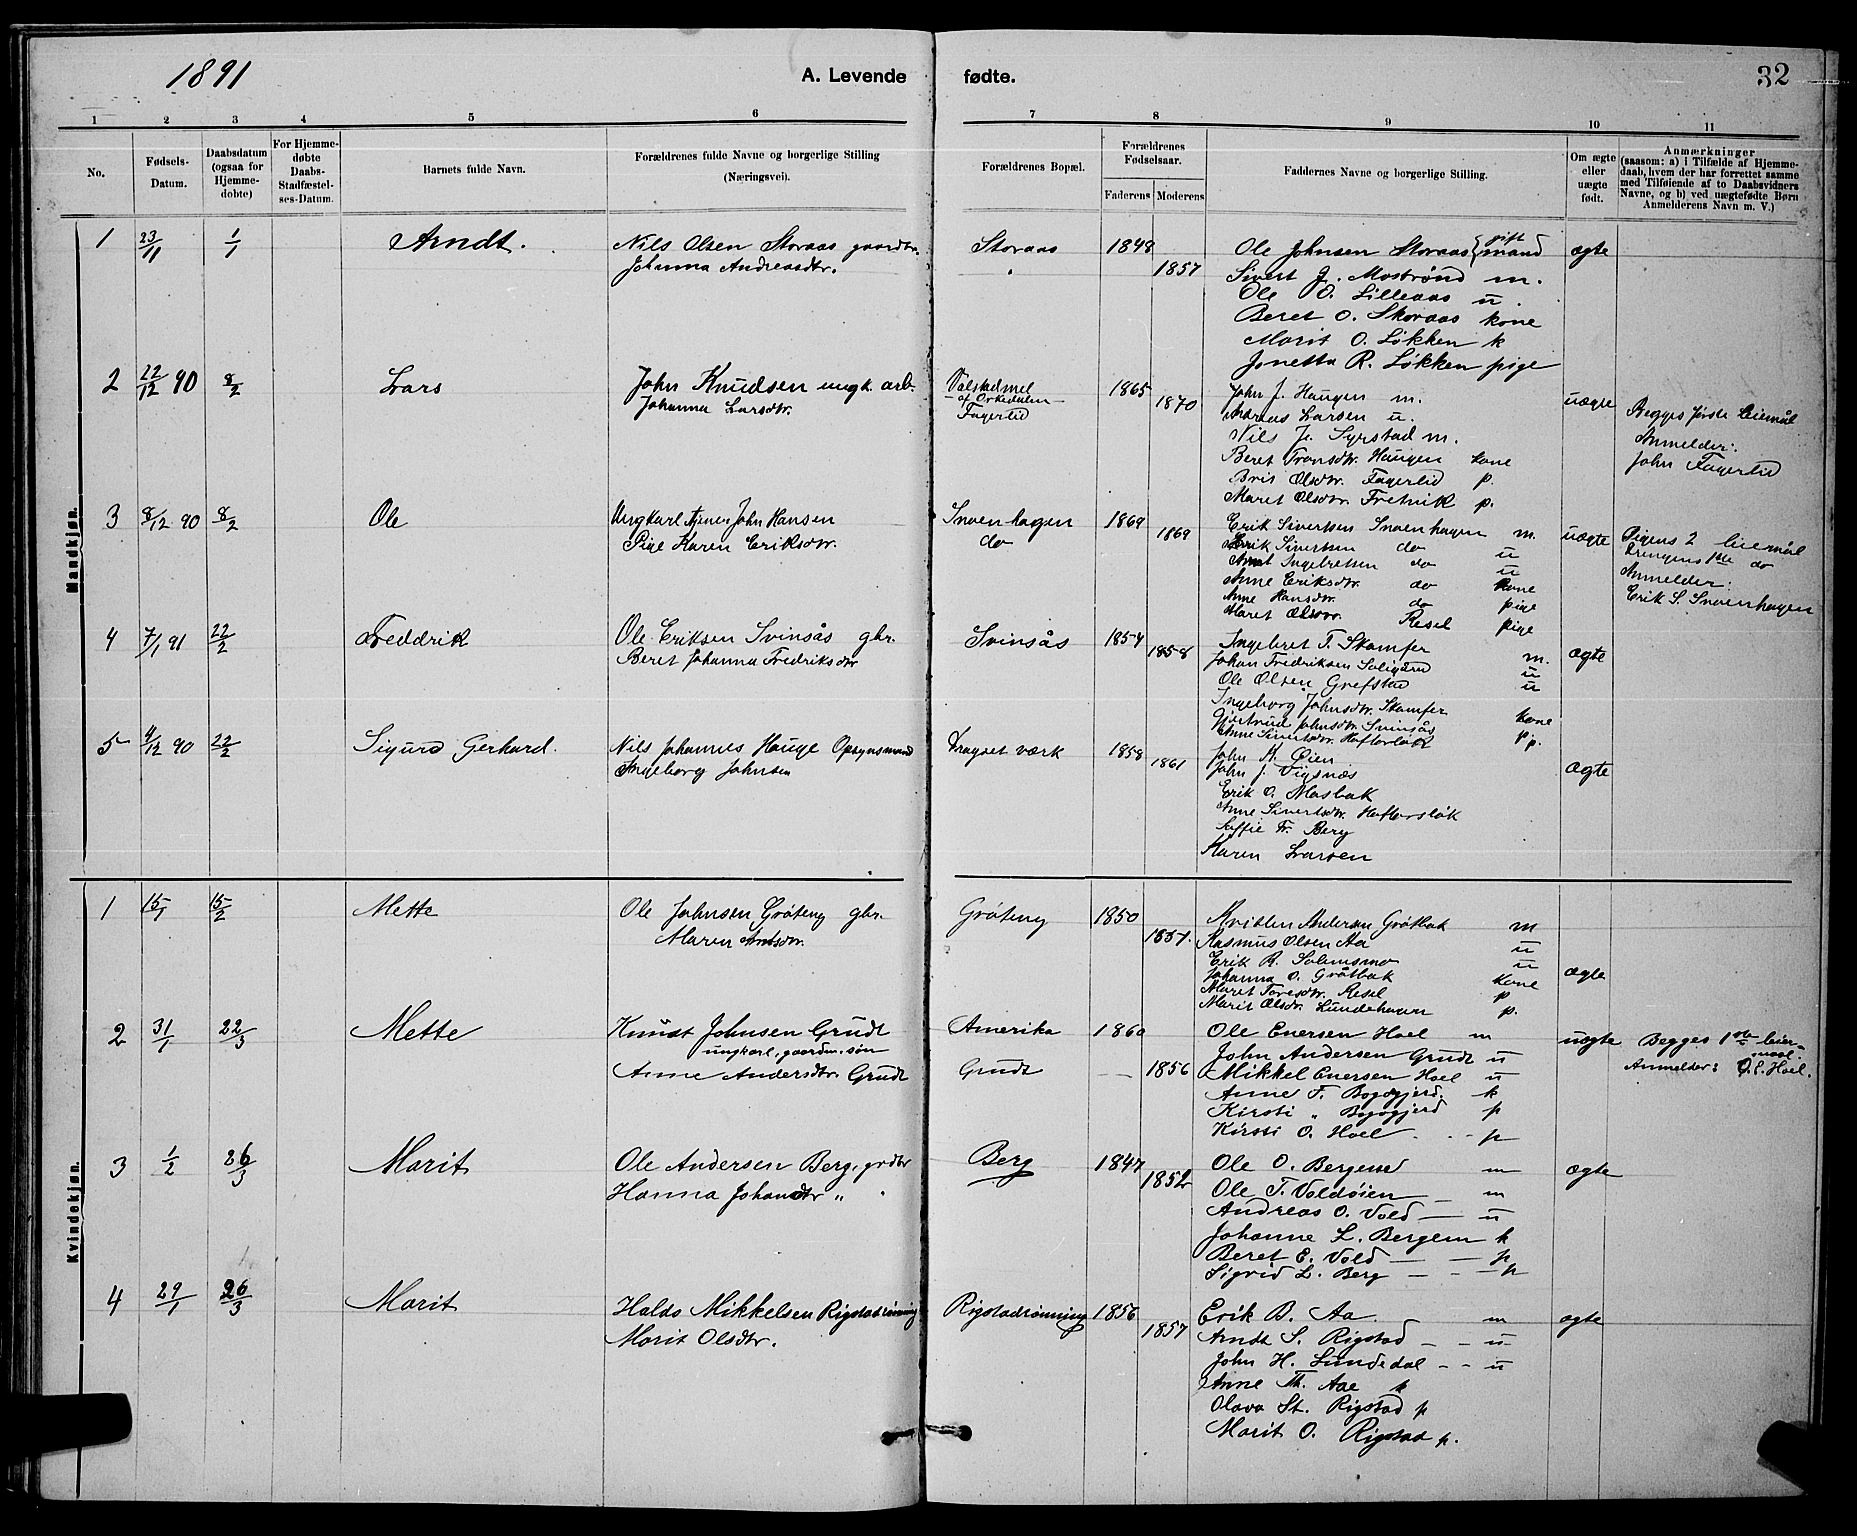 1891
A. Levende fødte.
32
1 2 3 4 5 6 7 8 9 10 11
No.
Fødsels-Datum.
Daabsdatum (ogsaa for Hjemmedøbte)
For Hjemmedøbte Daabs-Stadfæstelses-Datum.
Barnets fulde Navn.
Forældrenes fulde Navne og borgerlige Stilling (Næringsvei).
Forældrenes Bopæl.
Forældrenes Fødselsaar.
Faderens Moderens
Faddernes Navne og borgerlige Stilling.
Om ægte eller uægte født.
Anmærkninger (saasom: a) i Tilfælde af Hjemmedaab, hvem der har forrettet samme med Tilføiende af to Daabsvidners Navne, og b) ved uægtefødte Børn Anmelderens Navn m. V.)
Mandkjøn.
1 23/11 1/1 Arndt. Nils Olsen Storaas gaardbr. Storaas 1848 Ole Johnsen Storaas gift mand ægte
Johanna Andreasdtr. " 1857 Sivert J. Mostrønd m.
Ole O. Lilleaas u.
Beret O. Storaas kone
Marit O. Løkken k
Jonetta R. Løkken pige
2 22/12 90 8/2 Lars John Knudsen ungk. arb. Valstadmel 1865 John J. Haugen m. uægte
Johanna Larsdtr. af Orkedalen 1870 Andreas Larsen u. Begges første Leiemål
Fagerlid Nils J. Syrstad m. Anmelder:
Beret Tronsdtr. Haugen kone John Fagerlid
Brit Olsdtr. Fagerlid p.
Maret Olsdtr. Fretnik p.
3 8/12 90 8/2 Ole Ungkarl tjener John Hansen Snoenhagen 1869 Erik Sivertsen Snoenhagen m. uægte Pigens 2 leiemål
Pige Karen Eriksdtr. do 1869 Erik Sivertsen do u Drengens 1ste do
Arnt Ingebretsen do u Anmelder:
Anne Eriksdtr. do kone Erik S. Snoenhagen
Anne Hansdtr. do pige
Maret Olsdtr. Resel pige
4 7/1 91 22/2 Freddrik Ole Eriksen Svinsås gbr. Svinsås 1854 Ingebret T. Skamfer m. ægte
Beret Johanna Fredriksdtr 1858 Johan Fredriksen Soligård u
Ole Olsen Grefstad u
Ingeborg Johnsdtr. Skamfer kone
Gjertrud Johnsdtr. Svinsås p.
Anne Sivertsdtr. Haftorsløk p.
5 9/12 90 22/2 Sigurd Gerhard. Nils Johannes Hauge Opsynsmand Dragset værk 1858 John K. Øien ægte
Ingeborg Johnsen 1861 John J. Vigsnæs
Erik O. Mosbak
Anne Sivertsdtr. Haftorsløk
Soffie Fr. Berg
Karen Larsen
Kvindekjøn.
1 15/1 15/2 Mette Ole Johnsen Grøteng gbr. Grøteng 1850 Andersen Grøtbak m
Maren Arntsdtr. 1851. Rasmus Olsen Aa u
Erik R. Solemsmo u
Johanna O. Grøtbak kone ægte
Maret Toresdtr. Resel p
Marit Olsdtr. Lundehaven p.
2 31/1 22/3 Mette Knudt Johnsen Grudt Amerika 1860 Ole Enersen Hoel m uægte Begges 1ste leiermaal.
ungkarl, gaardm. søn John Andersen Grudt u
Anne Andersdtr. Grudt Grudt — 1856 Mikkel Enersen Hoel u Anmelder: O. E. Hoel.
Anne T. Bogogjerd. k
Kirsti " Bogogjerd p
Kirsti O. Hoel p
3 1/2 26/3 Marit Ole Andersen Berg, grdbr Berg 1847 Ole O. Bergem m ægte
Hanna Johansdtr " 1852 Ole T. Voldøien m
Andreas O. Vold u
Johanne L. Bergem k
Beret E. Vold p
Sigrid L. Berg p
4 29/1 26/3 Marit Haldo Mikkelsen Rigstadrønning Rigstadrønning 1856 Erik B. Aa m ægte
Marit Olsdtr. 1857 Arndt S. Rigstad u
John H. Lundedal u
Anne Th. Aae k
Olava St. Rigstad p
Marit O. Rigstad p.